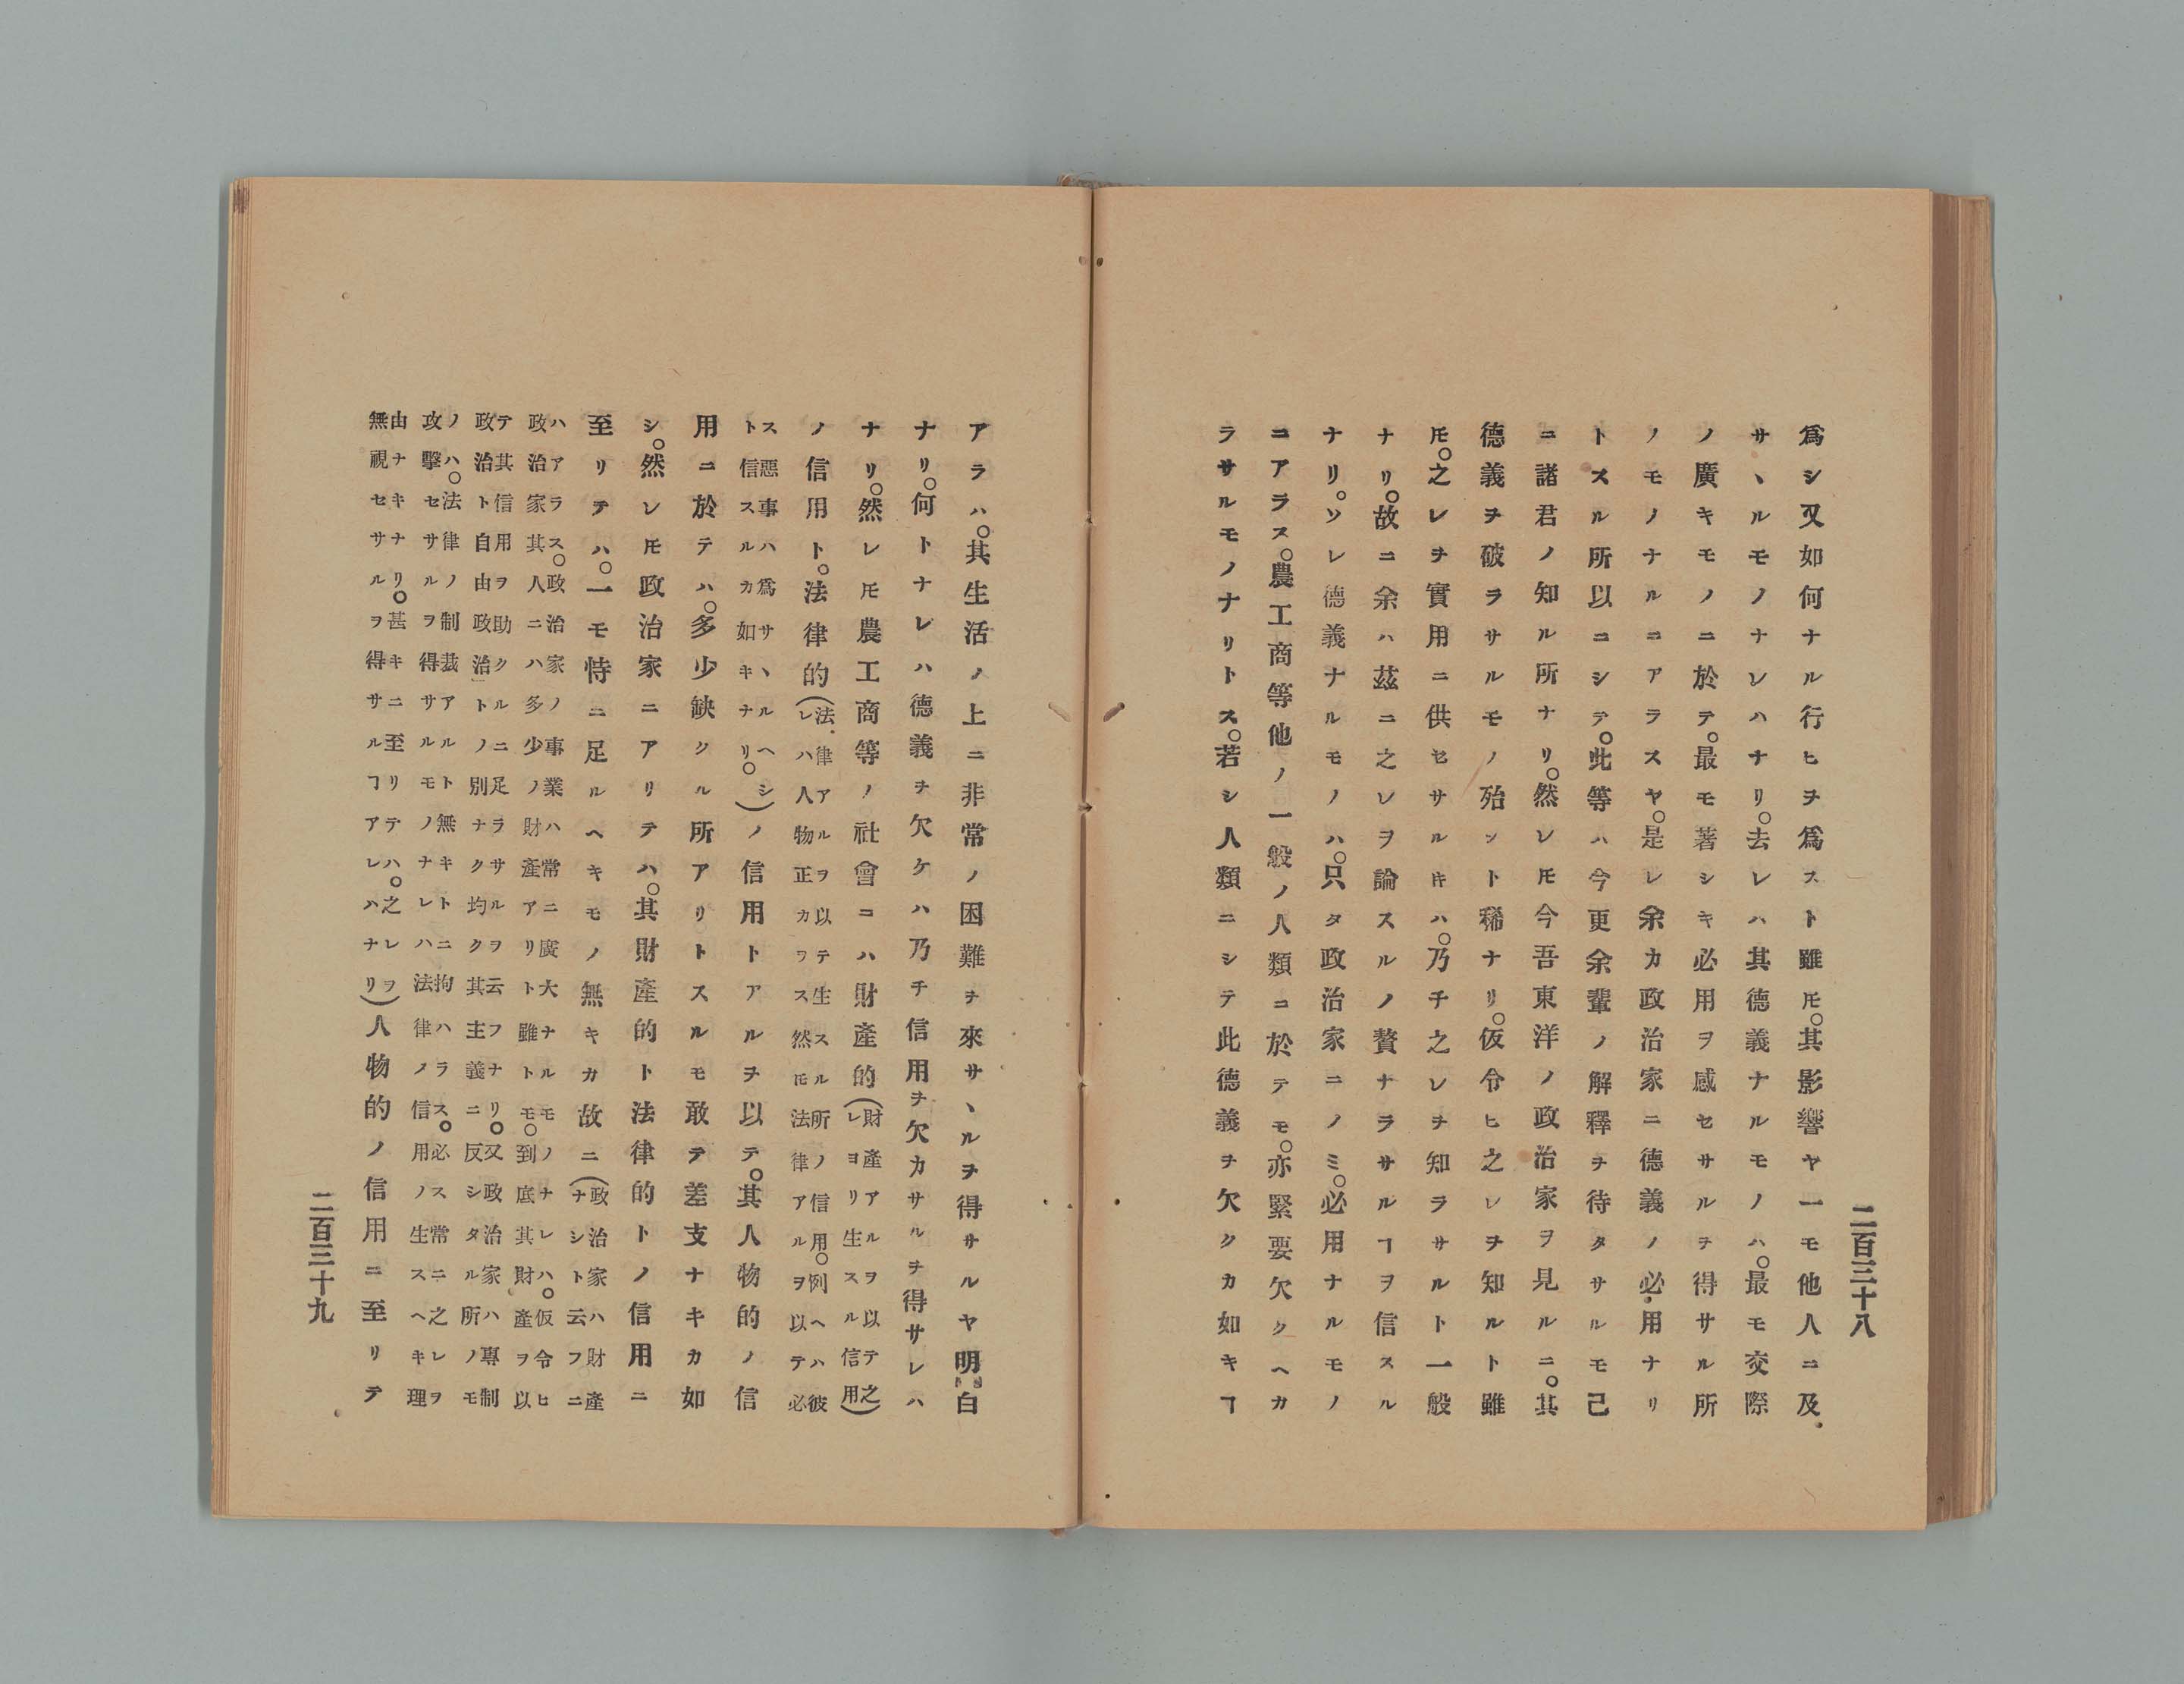 二百三十八
爲シ又如何ナル行ヒヲ爲スト雖𪜈。其影響ヤ一モ他人ニ及
サヽルモノナレハナリ。去レハ其德義ナルモノハ。最モ交際
ノ廣キモノニ於テ。最モ著シキ必用ヲ感セサルヲ得サル所
ノモノナルニアラスヤ。是レ余カ政治家ニ德義ノ必用ナリ
トスル所以ニシテ。此等ハ今更余輩ノ解釋ヲ待タサルモ己
ニ諸君ノ知ル所ナリ。然レ𪜈今吾東洋ノ政治家ヲ見ルニ。其
德義ヲ破ラサルモノ殆ント稀ナリ。仮令ヒ之レヲ知ルト雖
𪜈。之レヲ實用ニ供セサルキハ。乃チ之レヲ知ラサルト一般
ナリ。故ニ余ハ茲ニ之レヲ論スルノ贅ナラサルヿヲ信スル
ナリ。ソレ德義ナルモノハ。只タ政治家ニノミ。必用ナルモノ
ニアラス。農工商等他ノ一般ノ人類ニ於テモ。亦緊要欠クヘカ
ラサルモノナリトス。若シ人類ニシテ此德義ヲ欠クカ如キヿ
アラハ。其生活ノ上ニ非常ノ困難ヲ來サヽルヲ得サルヤ明白
ナリ。何トナレハ德義ヲ欠ケハ乃チ信用ヲ欠カサルヲ得サレハ
ナリ。然レ𪜈農工商等ノ社會ニハ財產的(財產アルヲ以テ之レヨリ生スル信用)
ノ信用ト。法律的(法律アルヲ以テ生スル所ノ信用。例ヘハ彼レハ人物正カワス然𪜈法律アルヲ以テ必
ス惡事ハ爲サヽルヘシト信スルカ如キナリ。)ノ信用トアルヲ以テ。其人物的ノ信
用ニ於テハ。多少缺クル所アリトスルモ敢テ差支ナキカ如
シ。然レ𪜈政治家ニアリテハ。其財產的ト法律的トノ信用ニ
至リテハ。一モ恃ニ足ルヘキモノ無キカ故ニ(政治家ハ財產ナシト云フニ
ハアラス。政治家ノ事業ハ常ニ廣大ナルモノナレハ。仮令ヒ政治家其人ニハ多少ノ財產アリト雖トモ。到底其財產ヲ以
テ其信用ヲ助クルニ足ラサルヲ云フナリ。又政治家ハ專制政治ト自由政治トノ別ナク均ク其主義ニ反シタル所ノモ
ノハ。法律ノ制裁アルト無キトニ拘ハラス。必ス常ニ之レヲ攻擊セサルヲ得サルモノナレハ法律ノ信用ノ生スヘキ理
由ナキナリ。甚キニ至リテハ。之レヲ無視セサルヲ得サルヿアレハナリ)人物的ノ信用ニ至リテ
二百三十九